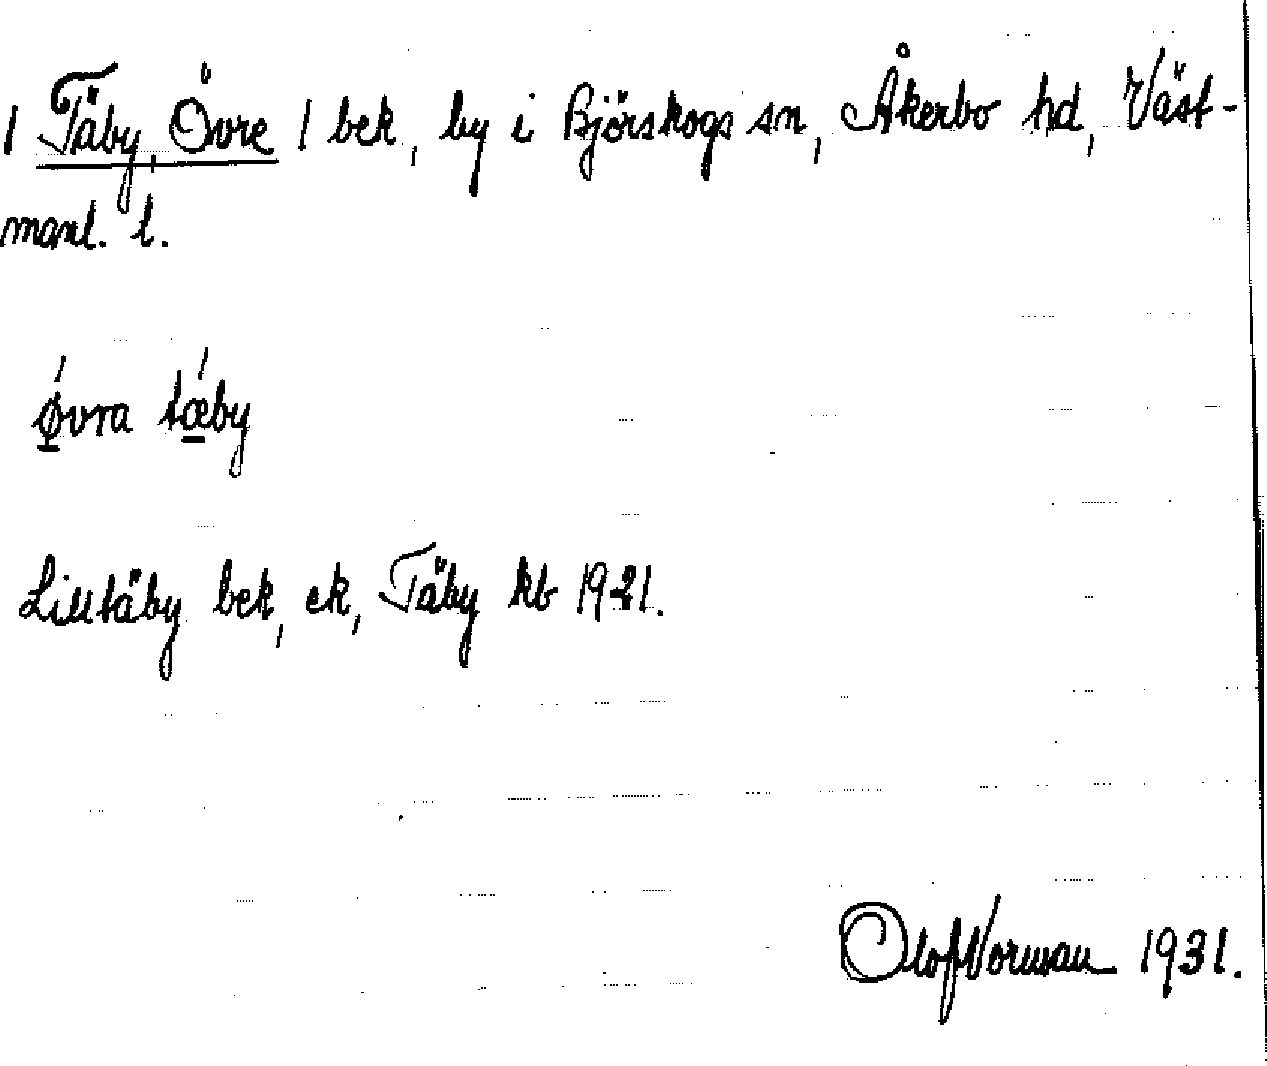 / Täby, Övre / bek, by i Björskogs sn, Åkerbo hd, Väst-
manl. l.
ǿvra tǽby
Lilltäby bek, ek, Täby kb 1921.
Olof Norman 1931.